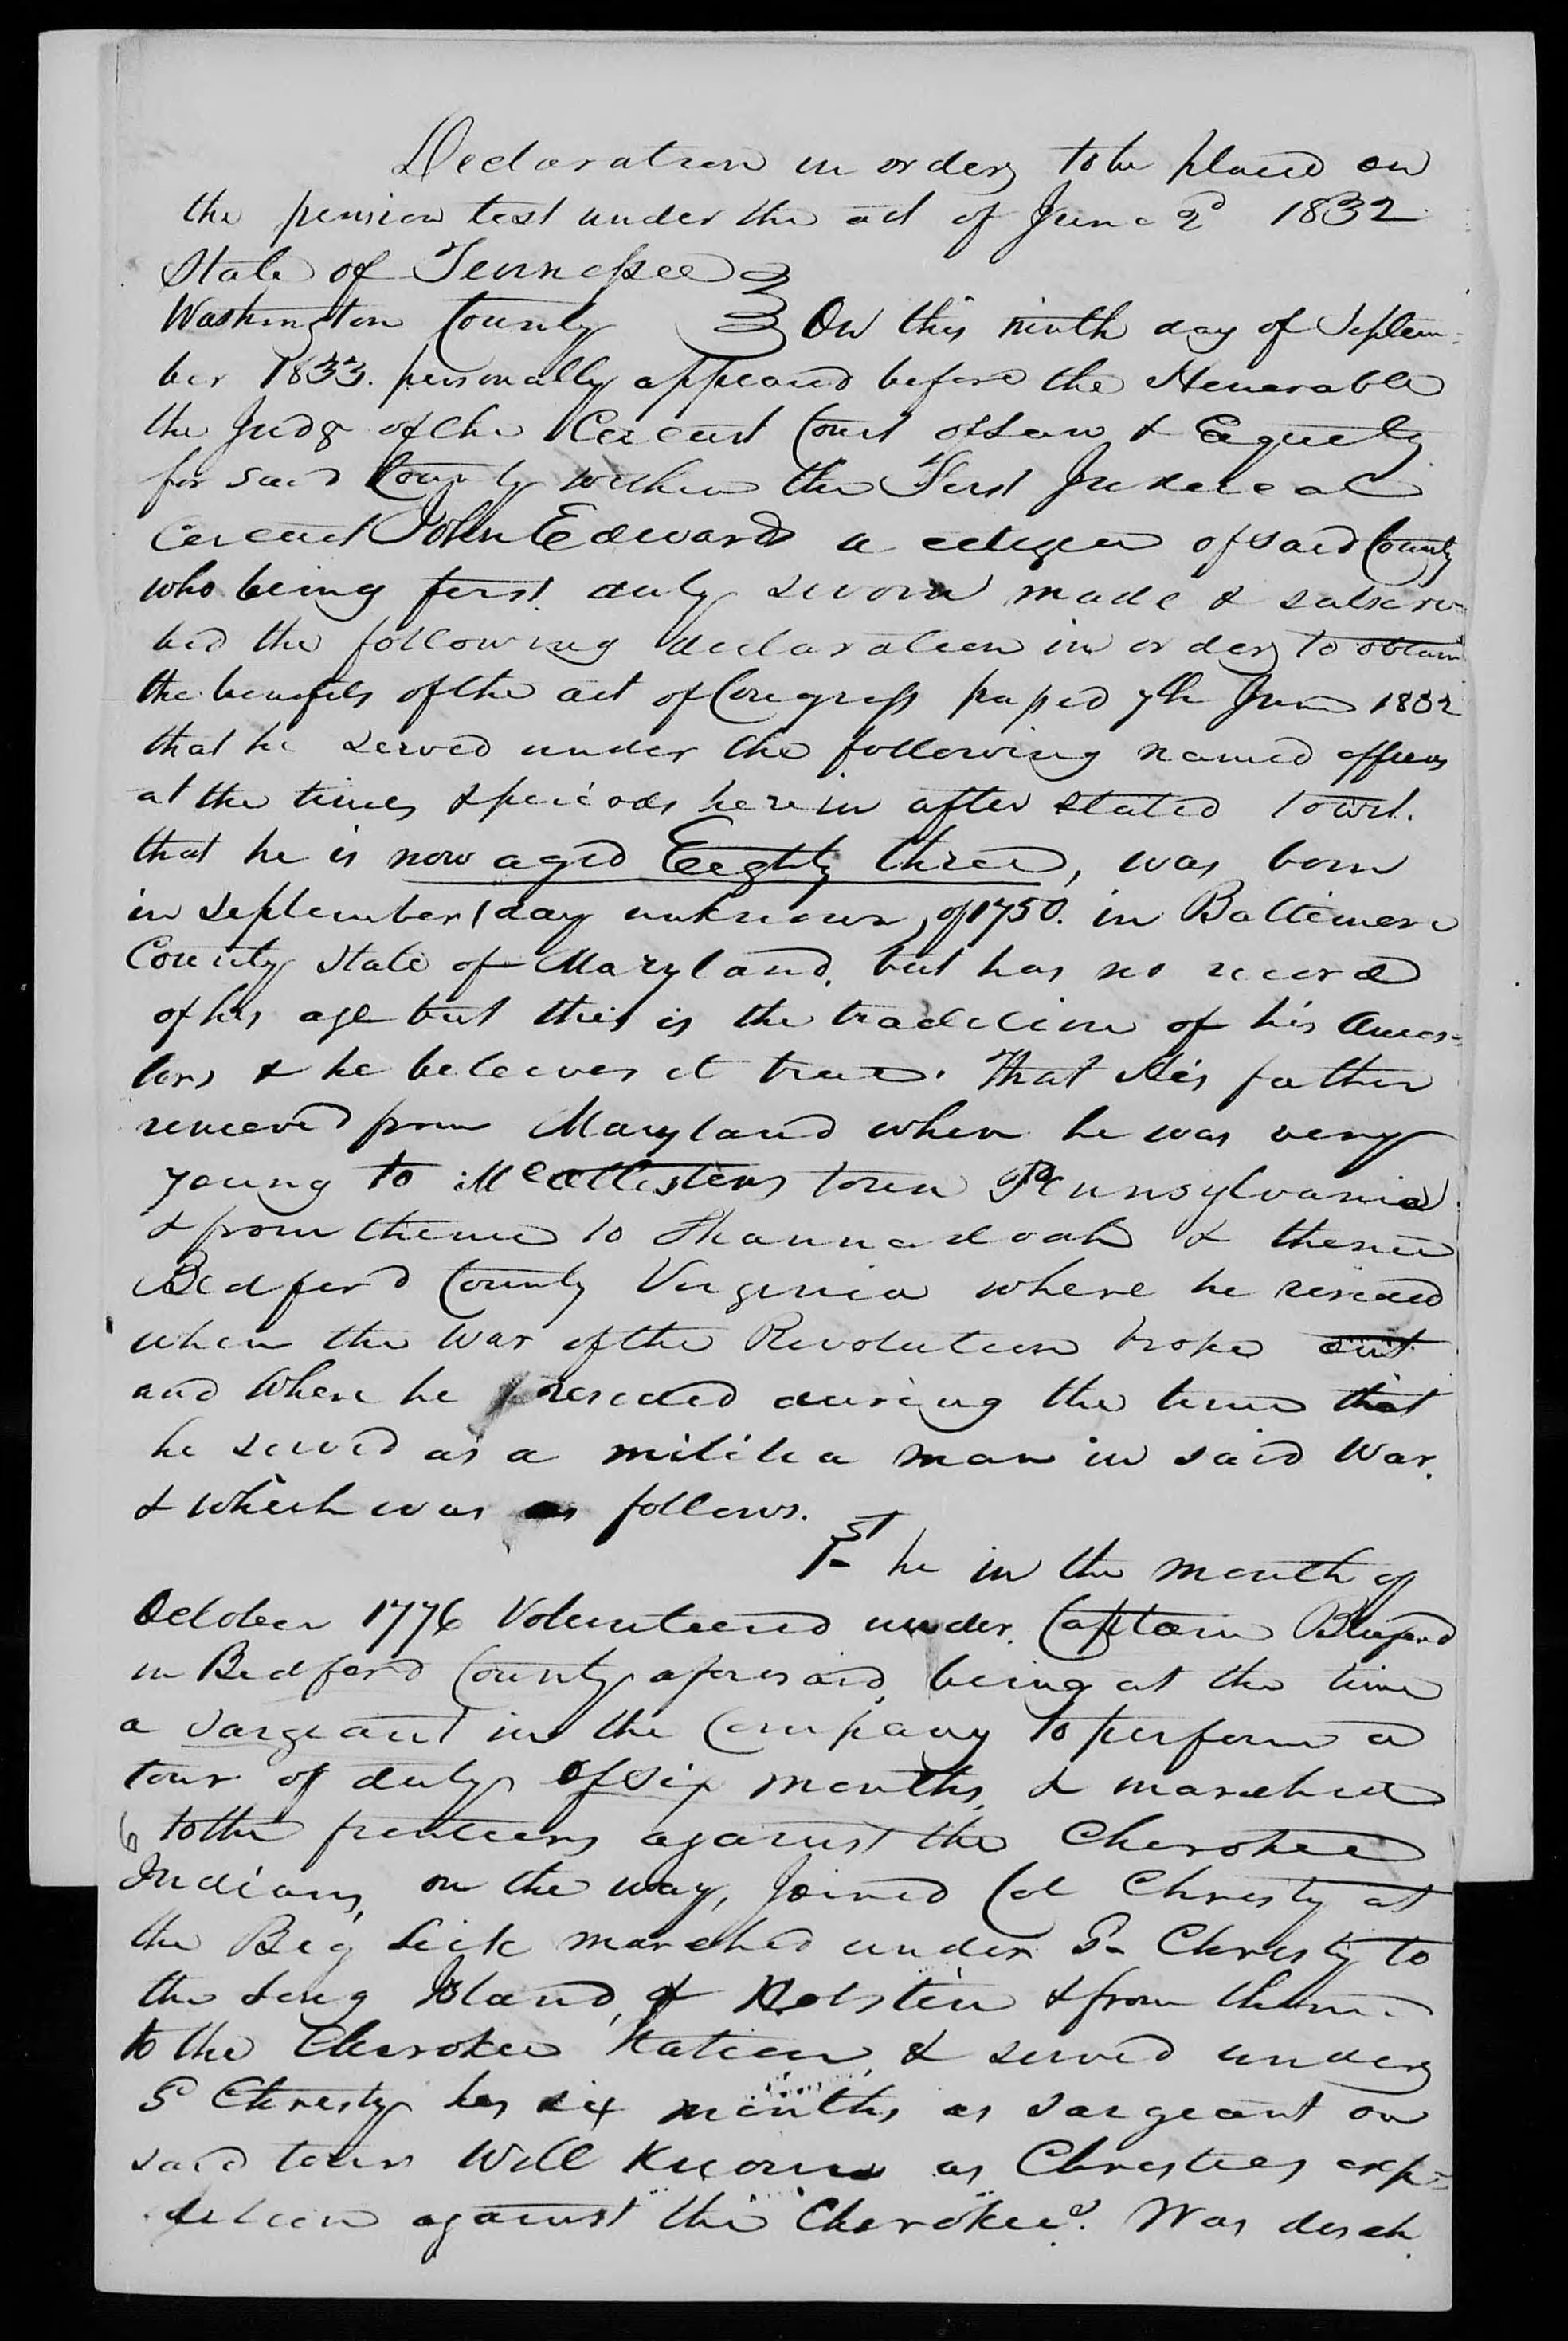 Declaration in order to be placed on
the pension list under the act of June 2d 1832
State of Tennessee
Washington County } On this ninth day of Septem-
ber 1833. personally appeared before the Honorable
the Judg of the Circuit Court of Law & Equity
for said County within the First Judicial
Circuit John Edwards a citizen of said County
who being first duly sworn made & subscri-
bed the following declaration in order to obtain
the benefits of the act of Congress passed 7th June 1832
that he served under the following named officers
at the times & periods herein after stated towit.
that he is now aged Eighty three, was born
in September (day unknown) of 1750. in Baltimore
County State of Maryland. but has no record
of his age but this is the tradition of his Ances-
tors & he believes it true. That his father
removed from Maryland when he was very
young to McAllisters town Pennsylvania
& from thence to Shannadoah & thence
Bedford County Virginia where he resided
when the War of the Revolution broke out
and where he resided during the time that
he served as a militia man in said War.
& which was as follows.
1st he in the month of
October 1776 Volunteered under Captain Bluford
in Bedford County aforesaid, being at the time
a Sargeant in the Company to perform a
tour of duty of six months, & marched
6 to the frontiers against the Cherokee
Indians, on the way, Joined Col Christy at
the Big Lick marched under Sd Christy to
the Long Island, of Holstein & from thence
to the Cherokee Nation, & served under
Sd Christy his six months as Sargeant on
said tour Well Known as Christies exp-
dition against the Cherokees. Was disch.